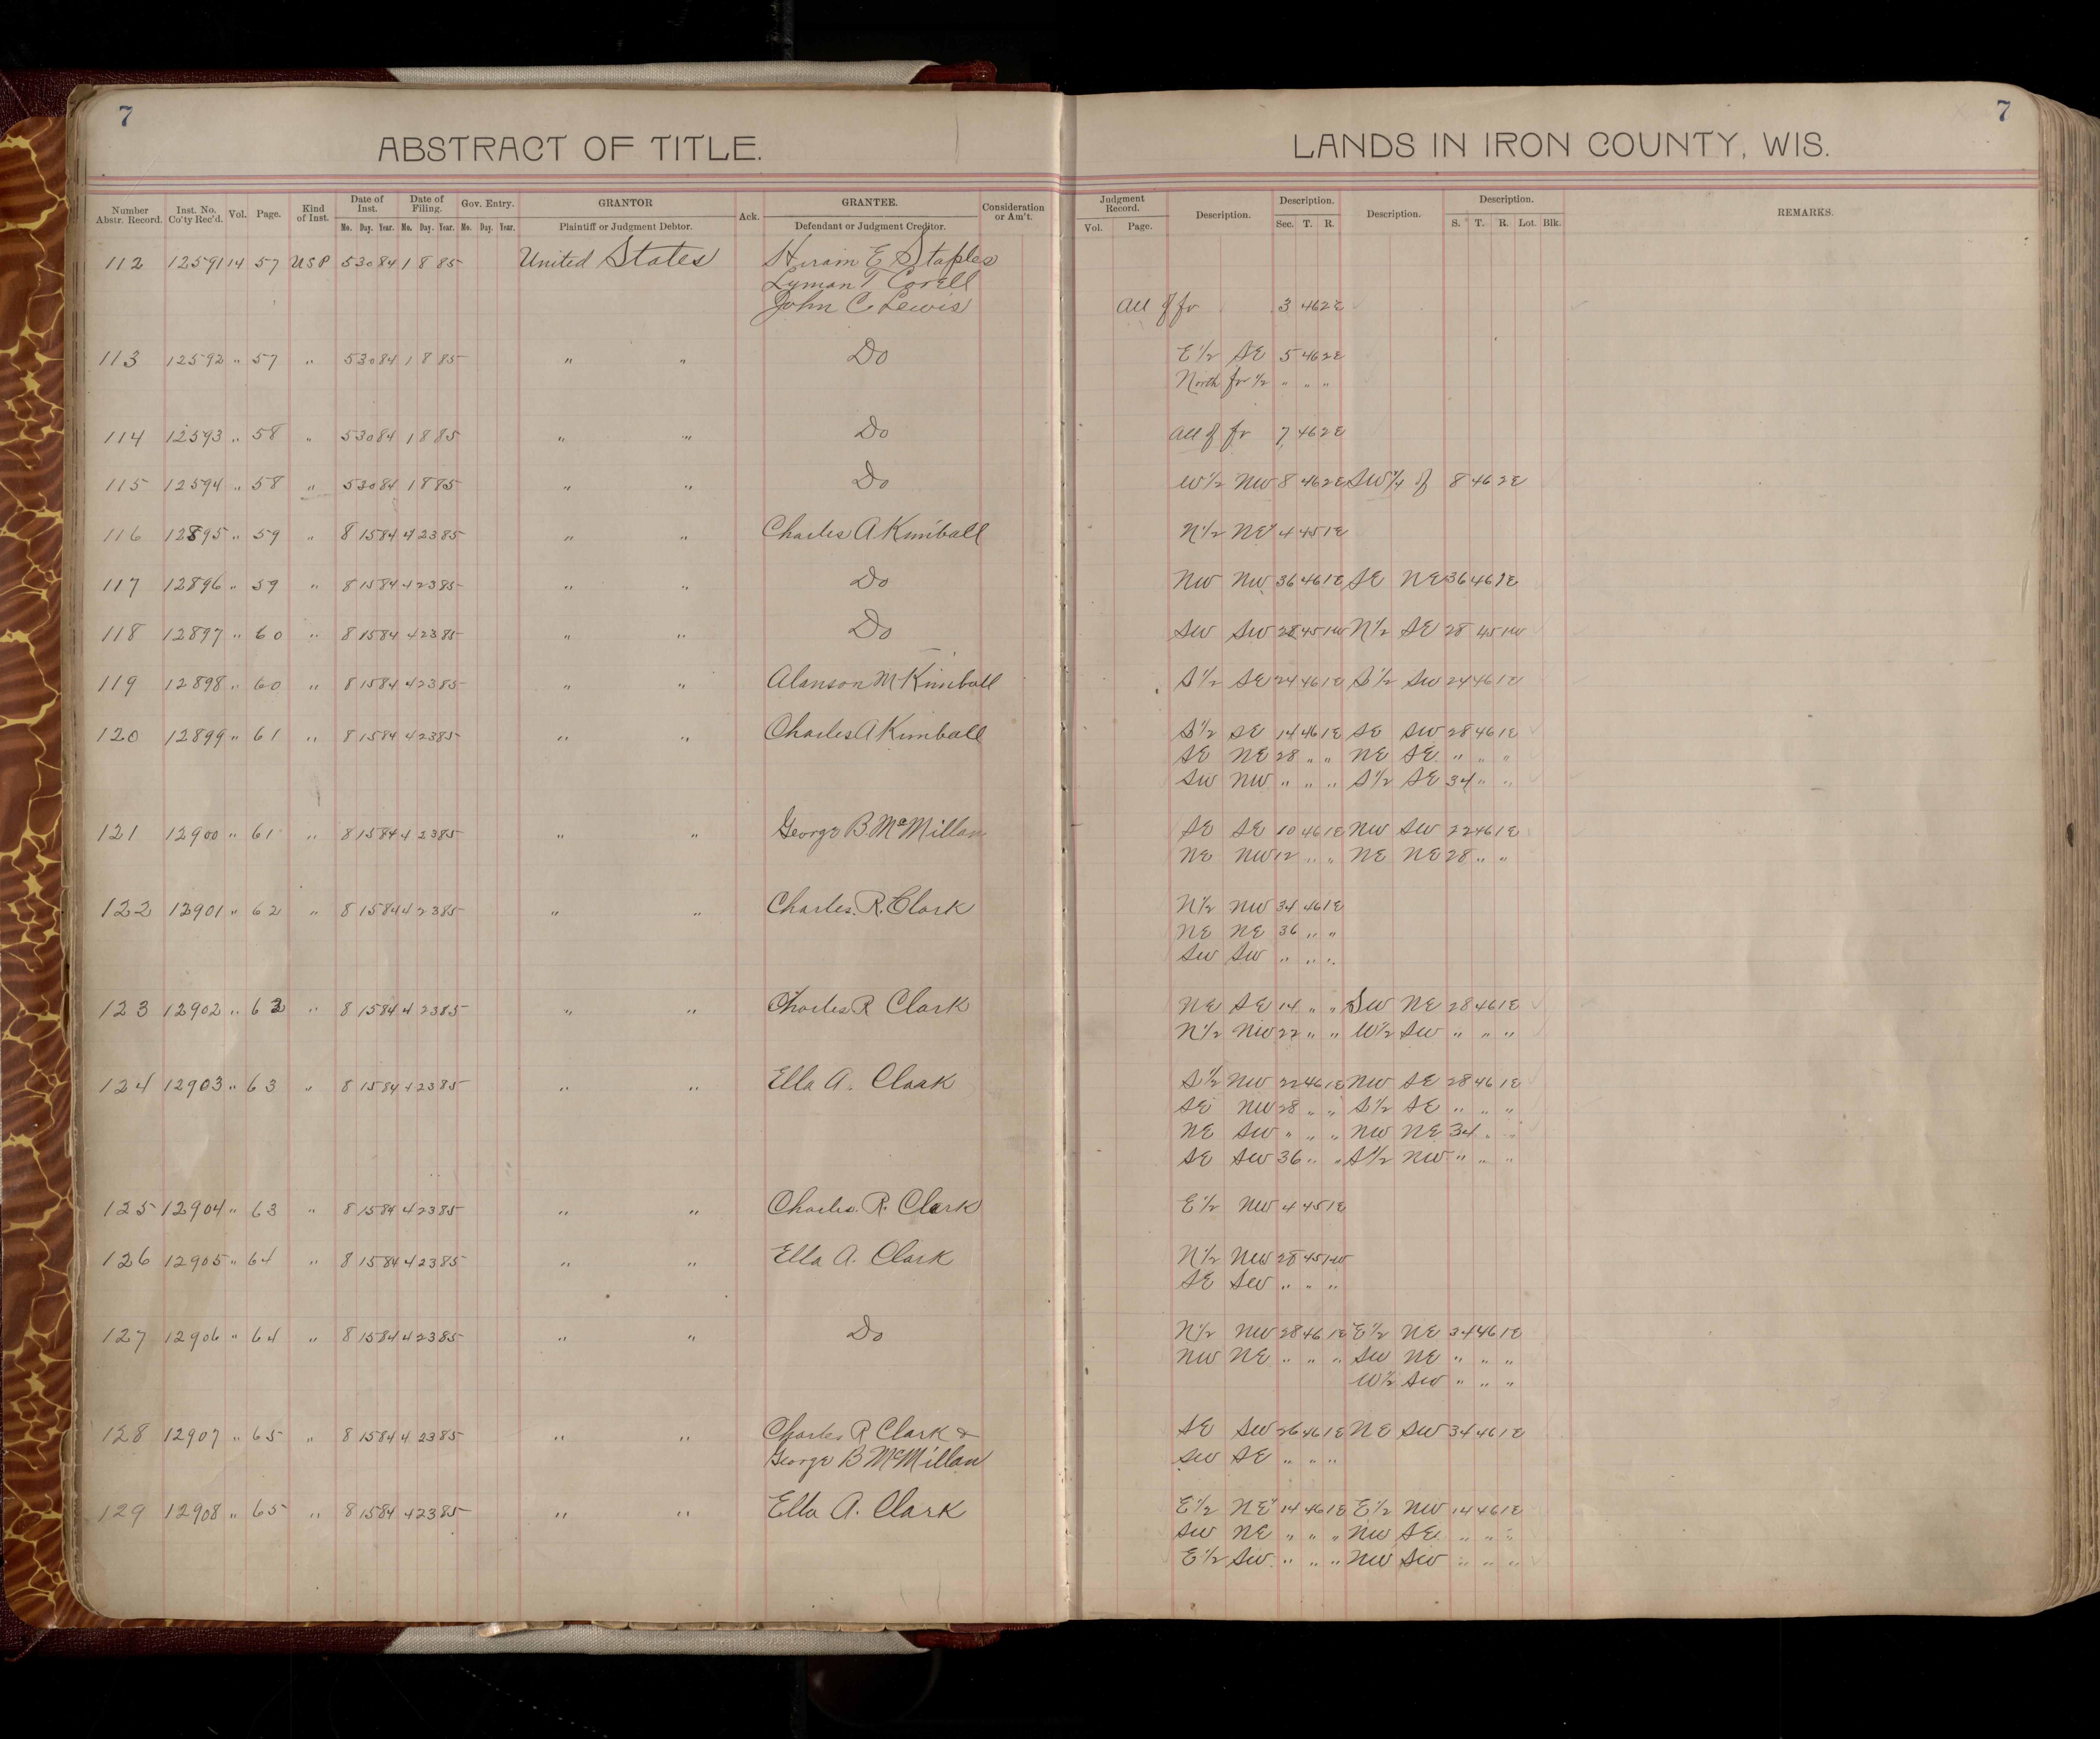 7
7
ABSTRACT OF TITLE.
LANDS IN IRON COUNTY, WIS.
Number Abstr. Record. Inst. No. Co'ty Rec'd. Vol. Page. Kind of Inst. Date of Inst. Mo. Day. Year. Date of Filing. Mo. Day. Year. Gov. Entry. Mo. Day. Year. GRANTOR Plaintiff or Judgment Debtor. Ack. GRANTEE. Defendant or Judgment Creditor. Consideration or Am't. Judgment Record. Vol. Page. Description. Description. Sec. T. R. Description. Description. S. T. R. Lot. Blk. REMARKS.
112 12591 14 57 USP 5 30 84 1 8 85 United States Hiram E Staples
Lyman T Corell
John C Lewis All of fr 3 46 2E
113 12592 " 57 " 5 30 84 1 8 85 " " Do E 1/2 SE 5 46 2E
North fr 1/2 " " "
114 12593 " 58 " 5 30 84 1 8 85 " " Do All of fr 7 46 2E
115 12594 " 58 " 5 30 84 1 8 85 " " Do W 1/2 NW 8 46 2E SW 1/4 of 8 46 2E
116 12895 " 59 " 8 15 84 4 23 85 " " Charles A Kimball N 1/2 NE 4 45 1E
117 12896 " 59 " 8 15 84 4 23 85 " " Do NW NW 36 46 1E SE NE 36 46 1E
118 12897 " 60 " 8 15 84 4 23 85 " " Do SW SW 28 45 1W N 1/2 SE 28 45 1W
119 12898 " 60 " 8 15 84 4 23 85 " " Alanson M Kimball S 1/2 SE 24 46 1E S 1/2 SW 24 46 1E
120 12899 " 61 " 8 15 84 4 23 85 " " Charles A Kimball S 1/2 SE 14 46 1E SE SW 28 46 1E
SE NE 28 " " NE SE " " "
SW NW " " " S 1/2 SE 34 " "
121 12900 " 61 " 8 15 84 4 23 85 " " George B McMillan SE SE 10 46 1E NW SW 22 46 1E
NE NW 12 " " NE NE 28 " "
122 12901 " 62 " 8 15 84 4 23 85 " " Charles. R. Clark N 1/2 NW 34 46 1E
NE NE 36 " "
SW SW " " "
123 12902 " 62 " 8 15 84 4 23 85 " " Charles R Clark NE SE 14 " " SW NE 28 46 1E
N 1/2 NW 22 " " W 1/2 SW " " "
124 12903 " 63 " 8 15 84 4 23 85 " " Ella A. Clark S 1/2 NW 22 46 1E NW SE 28 46 1E
SE NW 28 " " S 1/2 SE " " "
NE SW " " " NW NE 34 " "
SE SW 36 " " S 1/2 NW " " "
125 12904 " 63 " 8 15 84 4 23 85 " " Charles. R. Clark E 1/2 NW 4 45 1E
126 12905 " 64 " 8 15 84 4 23 85 " " Ella A. Clark N 1/2 NW 28 45 1W
SE SW " " "
127 12906 " 64 " 8 15 84 4 23 85 " " Do N 1/2 NW 28 46 1E E 1/2 NE 34 46 1E
NW NE " " " SW NE " " "
W 1/2 SW " " "
128 12907 " 65 " 8 15 84 4 23 85 " " Charles R Clark & SE SW 26 46 1E NE SW 34 46 1E
George B McMillan SW SE " " "
129 12908 " 65 " 8 15 84 4 23 85 " " Ella A. Clark E 1/2 NE 14 46 1E E 1/2 NW 14 46 1E
SW NE " " " NW SE " " "
E 1/2 SW " " " NW SW " " "